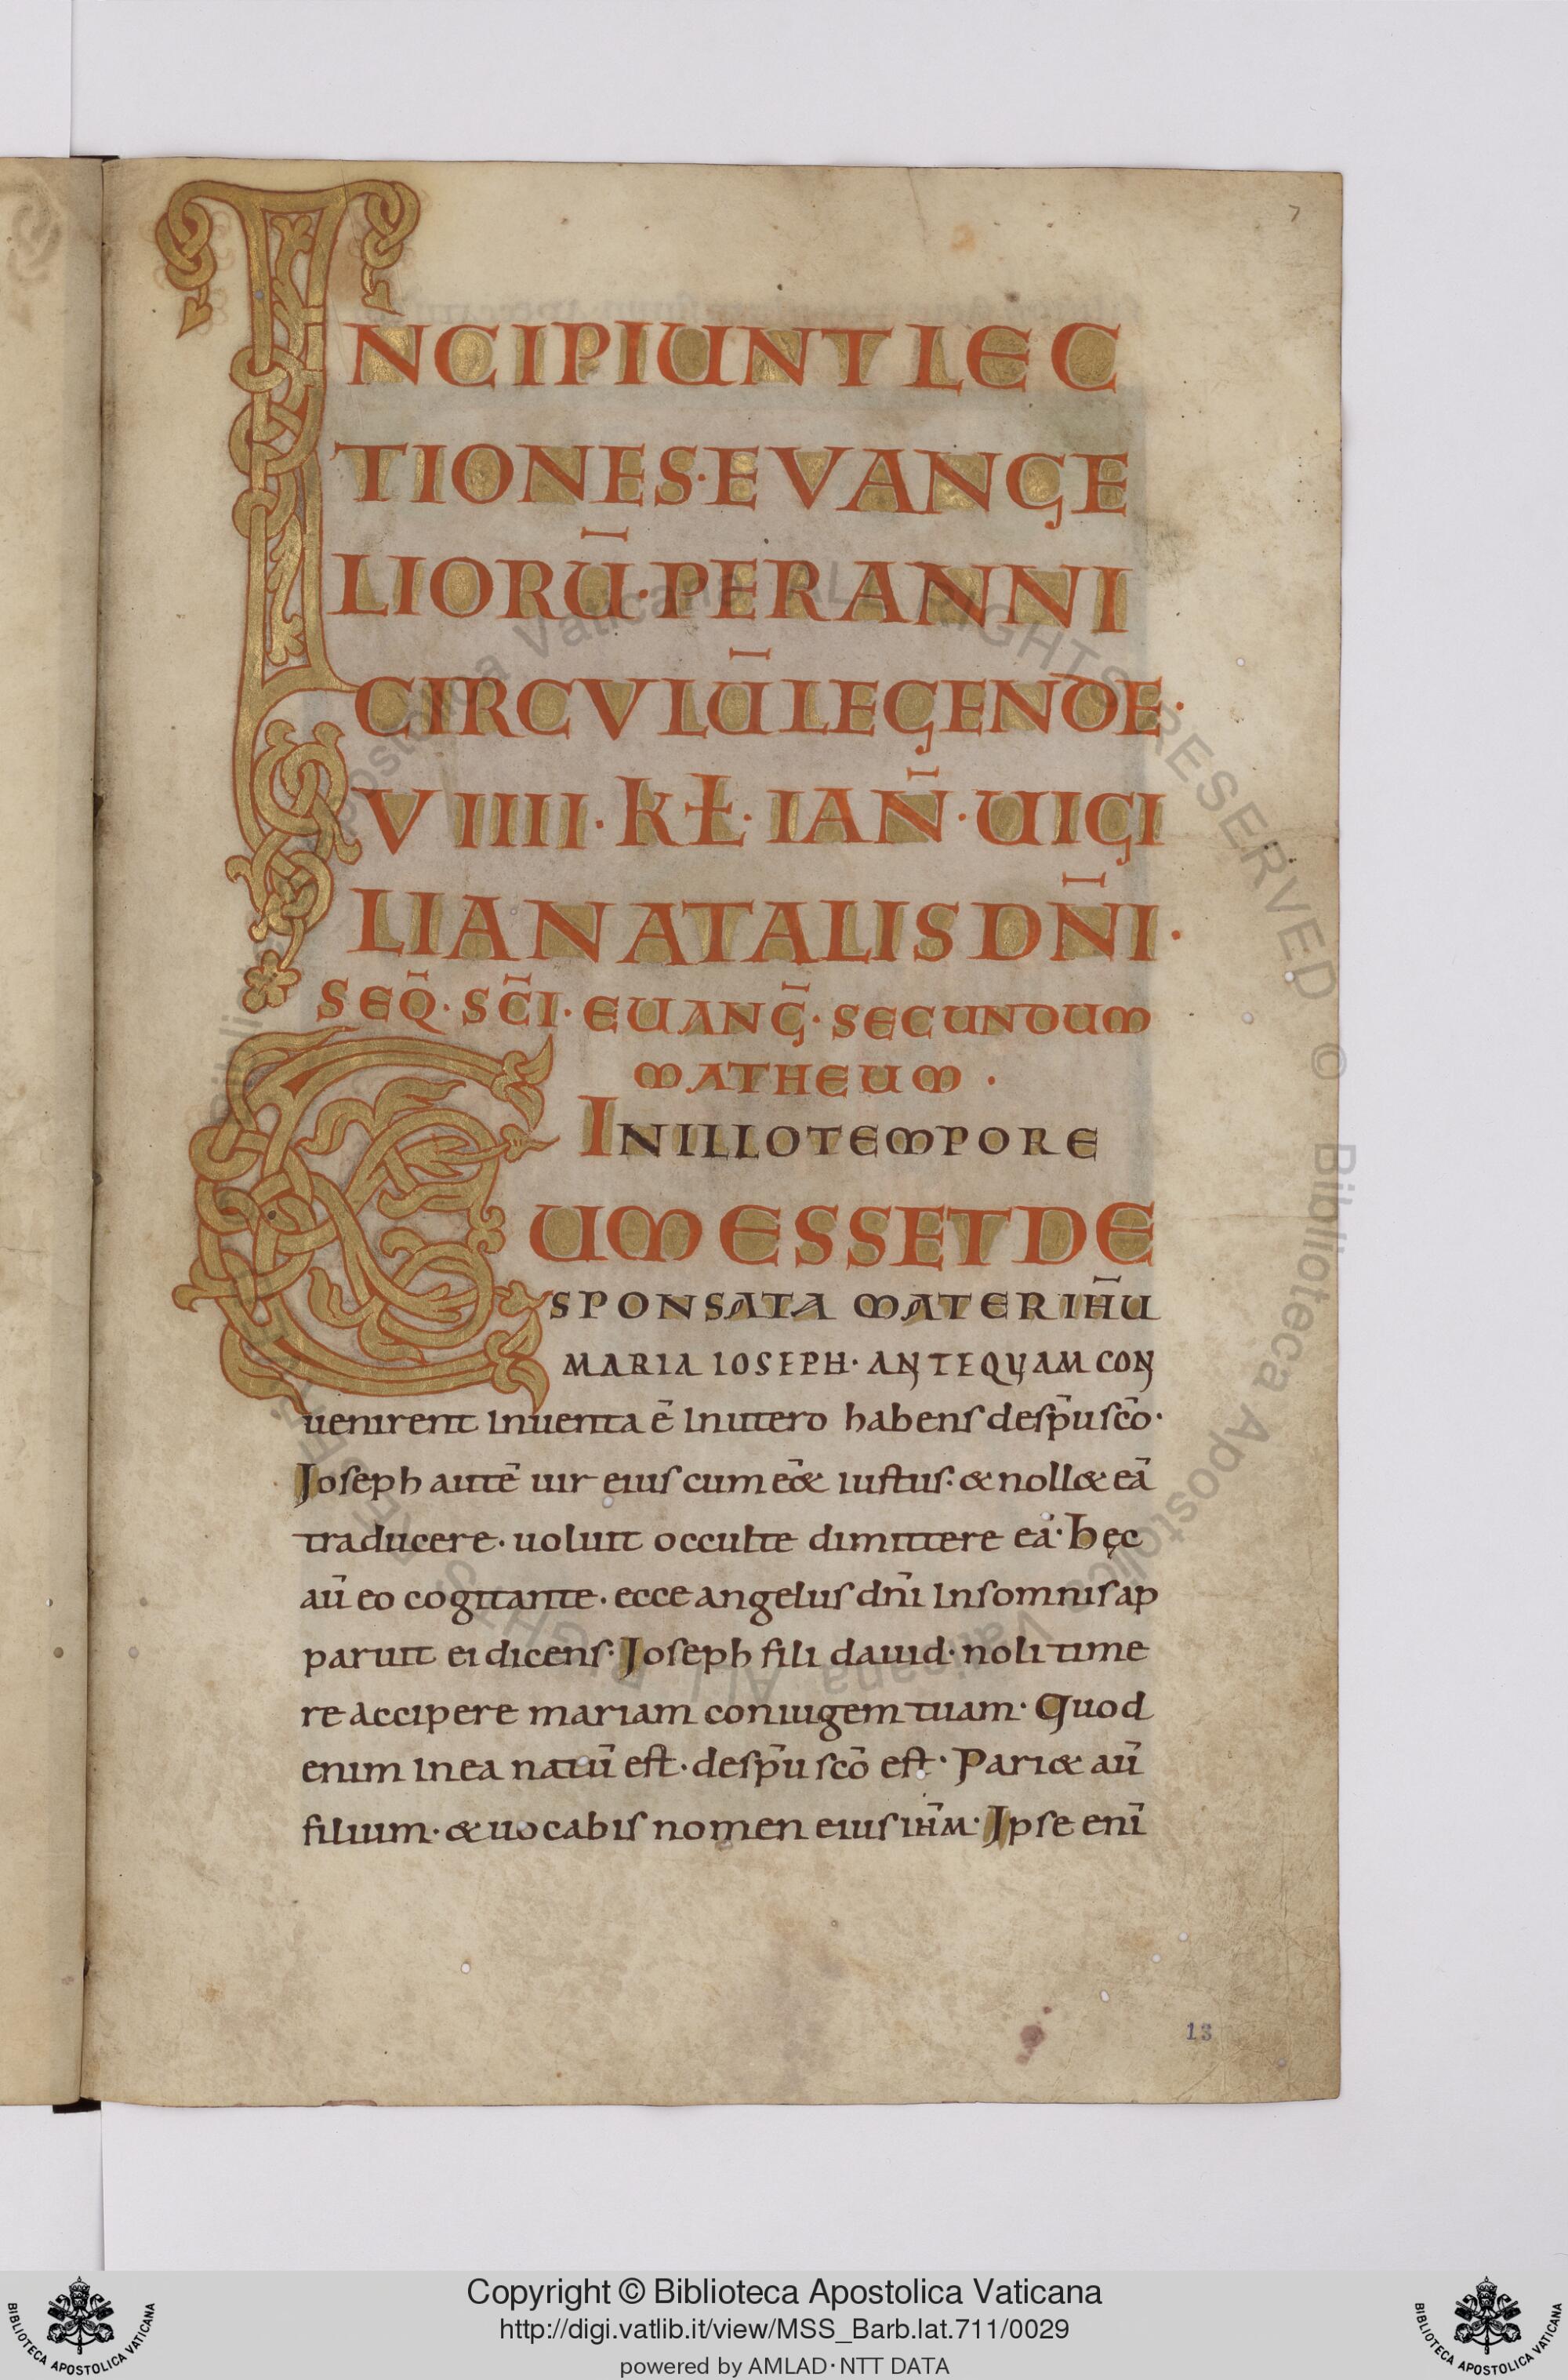 7
INCIPIUNT LEC
TIONES · EVANGE
LIORŪ · PER ANNI
CIRCVLŪ LEGENDE ·
VIIII · KŁ · IAN̄ · UIGI
LIA NATALIS DN̄I ·
SEQ̄ · SC̄I · EUANḠ · SECUNDUM
MATHEUM ·
IN ILLO TEMPORE
CUM ESSET DE
SPONSATA MATER IH̄U
MARIA IOSEPH · ANTEQUAM CON
uenirent inuenta ē in utero habens de sp̄u sc̄o ·
Ioseph autē uir eius cum eēt iustus · & noll& eā
traducere · uoluit occulte dimittere eā · hęc
aū eo cogitante · ecce angelus dn̄i in somnis ap
paruit ei dicens · Ioseph fili dauid · noli time
re accipere mariam coniugem tuam · Quod
enim in ea natū est · de sp̄u sc̄o est · Pari& aū
filium · & uocabis nomen eius ih̄m · Ipse enī
13
© Biblioteca Apostolica Vaticana ALL RIGHTS RESERVED
Copyright © Biblioteca Apostolica Vaticana
http://digi.vatlib.it/view/MSS_Barb.lat.711/0029
powered by AMLAD·NTT DATA
BIBLIOTECA APOSTOLICA VATICANA
BIBLIOTECA APOSTOLICA VATICANA